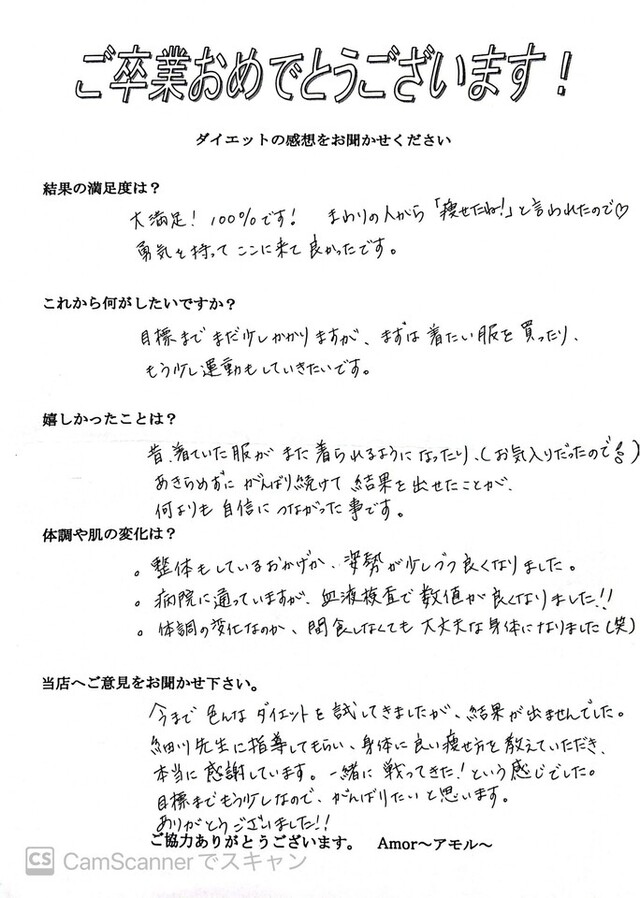 ご卒業おめでとうございます！
ダイエットの感想をお聞かせください
結果の満足度は？
大満足！100%です！ まわりの人から「痩せたね!」と言われたので♡
勇気を持ってここに来て良かったです。
これから何がしたいですか？
目標までまだ少しかかりますが、まずは着たい服を買ったり、
もう少し運動もしていきたいです。
嬉しかったことは？
昔、着ていた服がまた着られるようになったり、(お気入りだったので)
あきらめずにがんばり続けて結果を出せたことが、
何よりも自信につながった事です。
体調や肌の変化は？
。整体もしているおかげか、姿勢が少しづつ良くなりました。
。病院に通っていますが、血液検査で数値が良くなりました!!
。体調の変化なのか、間食しなくても大丈夫な身体になりました(笑)
当店へご意見をお聞かせ下さい。
今まで色んなダイエットを試してきましたが、結果が出ませんでした。
細川先生に指導してもらい、身体に良い痩せ方を教えていただき、
本当に感謝しています。一緒に戦ってきた!という感じでした。
目標までもう少しなので、がんばりたいと思います。
ありがとうございました!!
ご協力ありがとうございます。 Amor～アモル～
CS CamScannerでスキャン